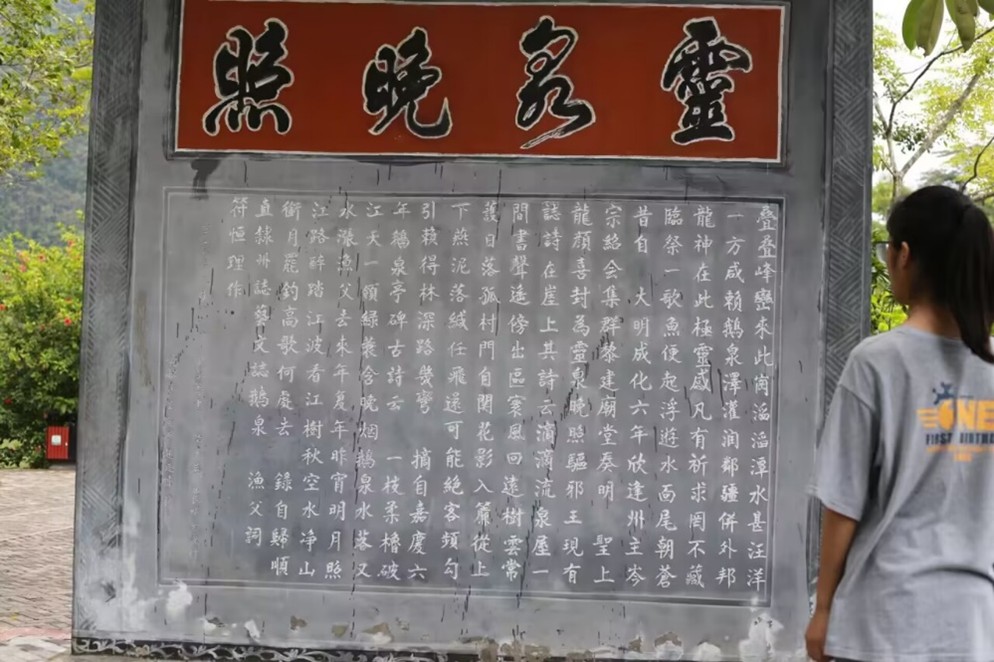 靈泉晚照
疊叠峰巒來此崗滔滔潭水甚汪洋
一方咸賴鵝泉澤灌润鄰疆併外邦
龍神在此極靈感凡有祈求罔不藏
臨祭一歌魚便起浮遊水面尾朝蒼
昔自 大明成化六年欣逢州主岑
宗紹会集群黎建廟堂奏明 聖上
龍顔喜封為靈泉晚照驅邪王現有
誌詩在崖上其詩云滴滴流泉屋一
間書聲遙傍出區寰風回遠樹雲常
護日落孤村門自関花影入簾從上
下燕泥落緘任飛還可能絶客頻勾
引蘋得林深路幾彎 摘自嘉慶六
年鵝泉亭碑古詩云 一枝柔櫓破
江天一領緑蓑含晚烟鵝泉水落又
水漲漁父去来年复年昨宵明月照
江路醉踏江波看江樹秋空水净山
銜月罷釣高歌何處去 錄自歸順
直隸州誌藝文誌鵝泉 漁父詞
符恒理作
ONE
FIRST